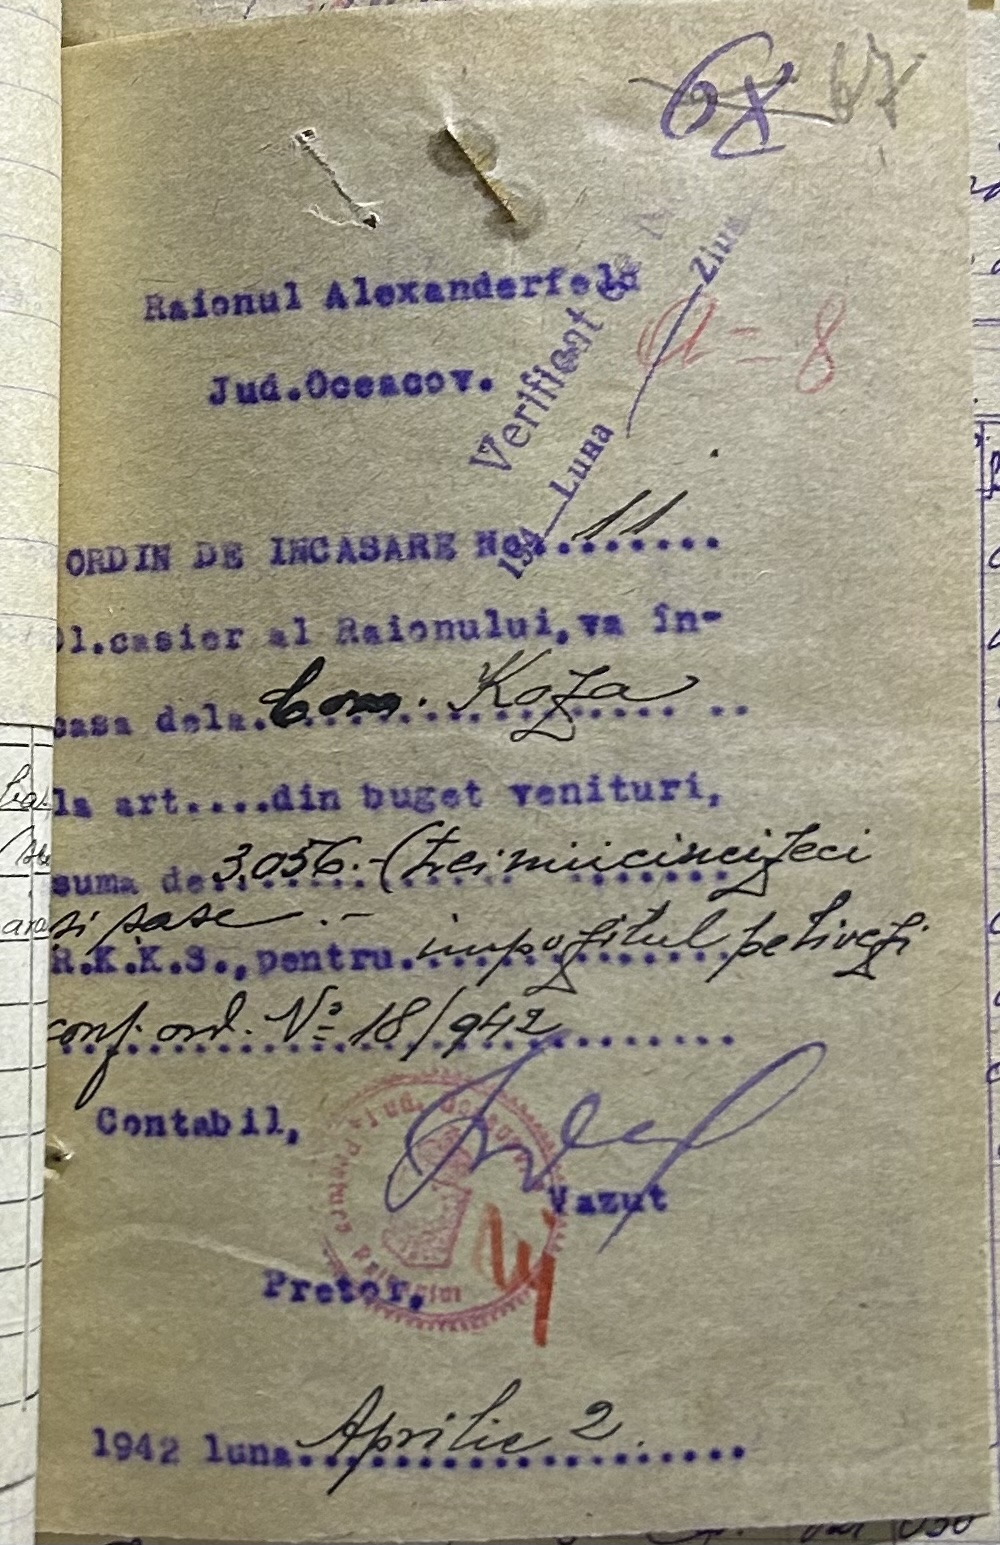 68 67
Raionul Alexanderfeld
Jud.Oceacov.
Verificat
194 Luna Ziua
a=8
ORDIN DE INCASARE No. 11
Dl.casier al Raionului,va în-
casa dela. Com. Koza
la art....din buget venituri,
suma de 3.056.-(trei mii cinci zeci
si sase.-
R.K.K.S.,pentru. impozitul pe livezi
conf. ord. No 18/942
Contabil,
Vazut
Pretor,
1942 luna Aprilie 2.